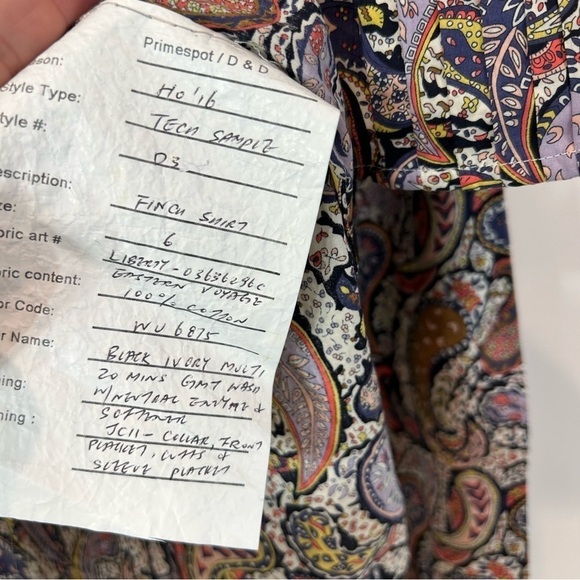 son: Primespot / D & D
style Type: HO '16
tyle #: TECH SAMPLE
D3
escription: FINCH SHIRT
ze: 6
bric art # LIBERTY - 03636296C
EASTERN VOYAGE
ric content: 100% COTTON
or Code: WV 6875
r Name: BLACK IVORY MULTI
ning: 20 MINS GMT WASH
W/NEUTRAL ENZYME &
SOFTENER
ning : JC11 - COLLAR, FRONT
PLACKET, CUFFS &
SLEEVE PLACKET